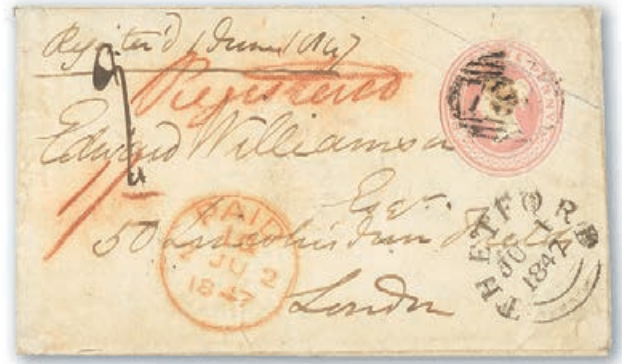 Register'd 1 June 1847
Registered
Edward Williamson
Esqr.
1/-
50 Lincolns Inn Fields
London
PAID
JU 2
1847
THETFORD
JU 1
1847